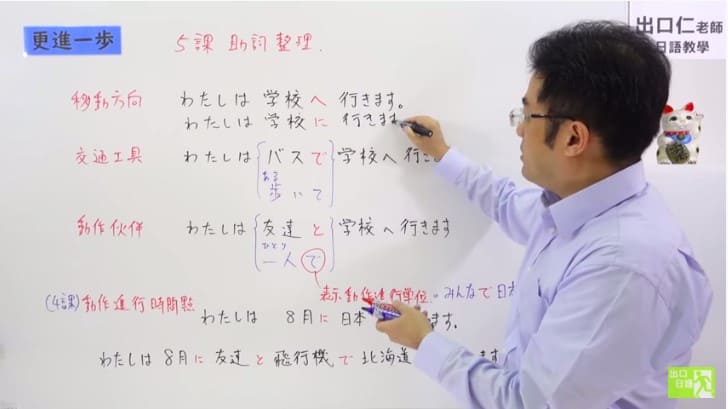 更進一歩
5課 助詞整理.
出口仁老師
日語教學
移動方向 わたしは 学校へ 行きます。
わたしは 学校に 行きま
交通工具 わたしは バスで 学校へ 行き
ある
歩いて
動作伙伴 わたしは 友達と 学校へ 行きます
ひとり
一人で
表示動作進行單位。みんなで 日本
(4課)動作進行時間點
わたしは 8月に 日本 ます。
わたしは 8月に 友達と 飛行機で 北海道 ます
出口
日語